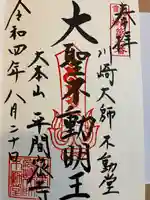 奉拝
川崎大師 不動堂
大聖不動明王
大本山 平間寺
令和四年八月二十日